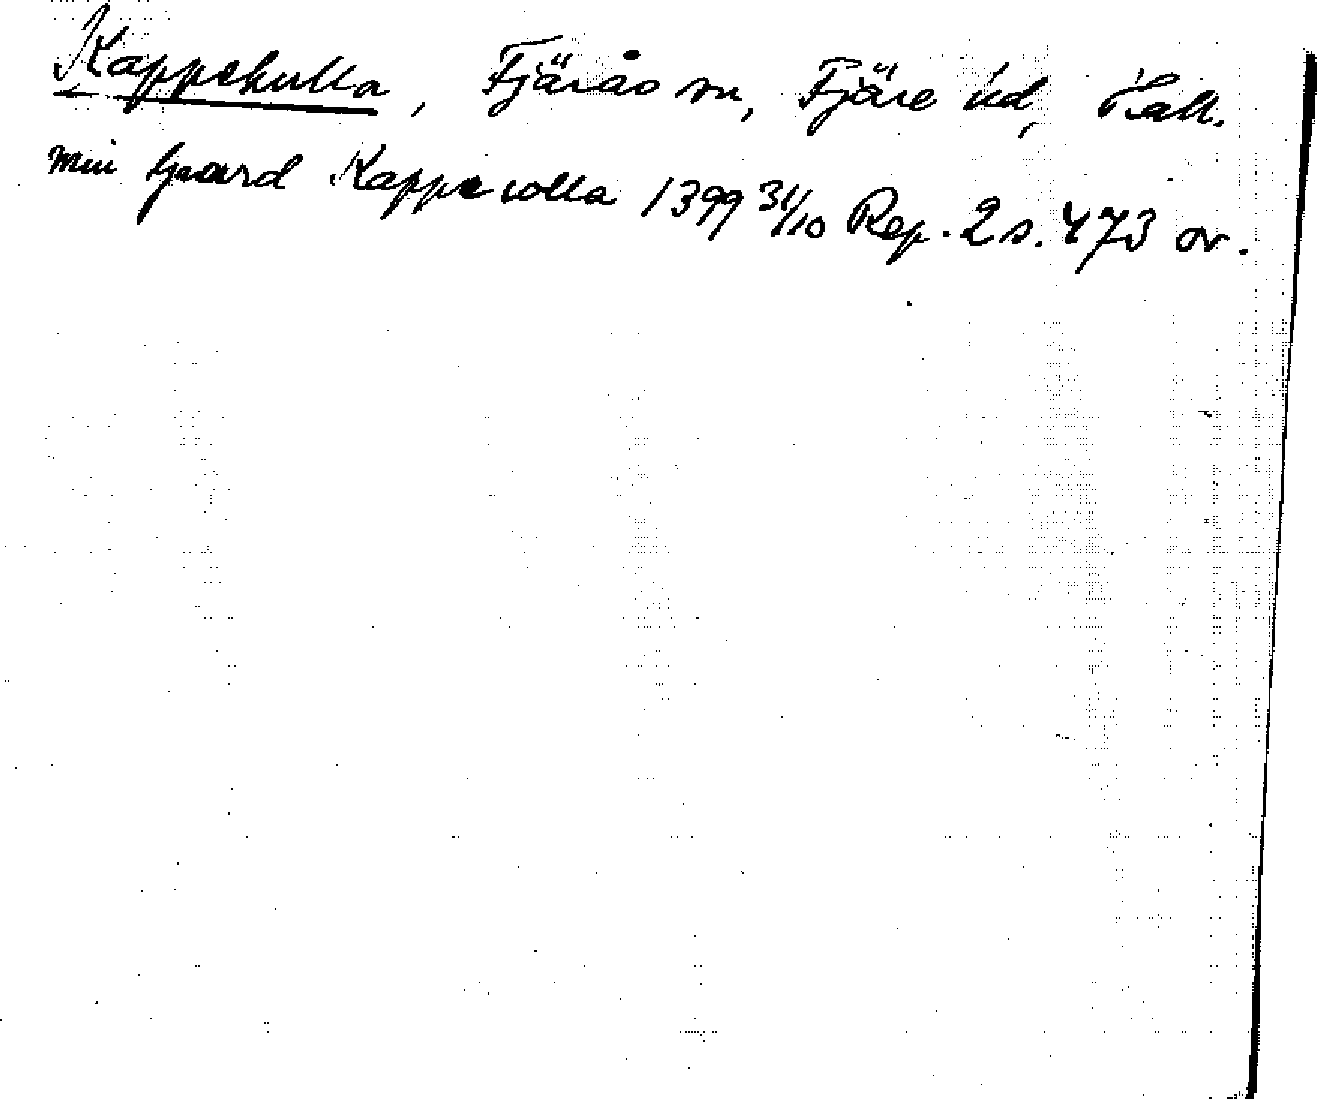 Kappekulla, Fjärås sn, Fjäre hd, Hall.
min Gaard Kappe colla 1399 31/10 Rep. 2 s. 473 or.